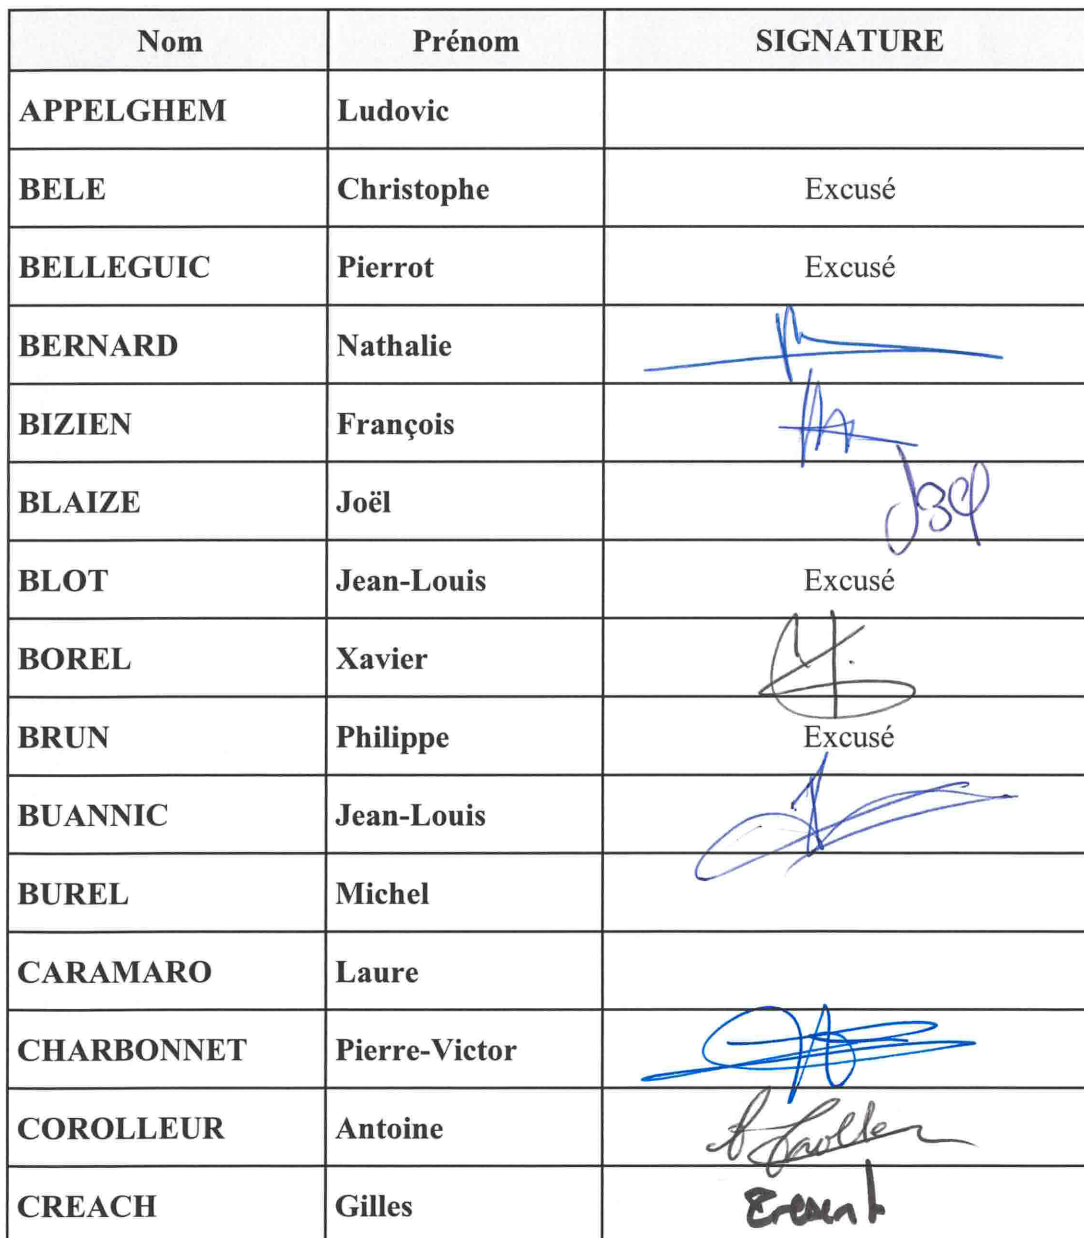 Nom Prénom SIGNATURE
APPELGHEM Ludovic
BELE Christophe Excusé
BELLEGUIC Pierrot Excusé
BERNARD Nathalie
BIZIEN François
BLAIZE Joël
BLOT Jean-Louis Excusé
BOREL Xavier
BRUN Philippe Excusé
BUANNIC Jean-Louis
BUREL Michel
CARAMARO Laure
CHARBONNET Pierre-Victor
COROLLEUR Antoine
CREACH Gilles Present